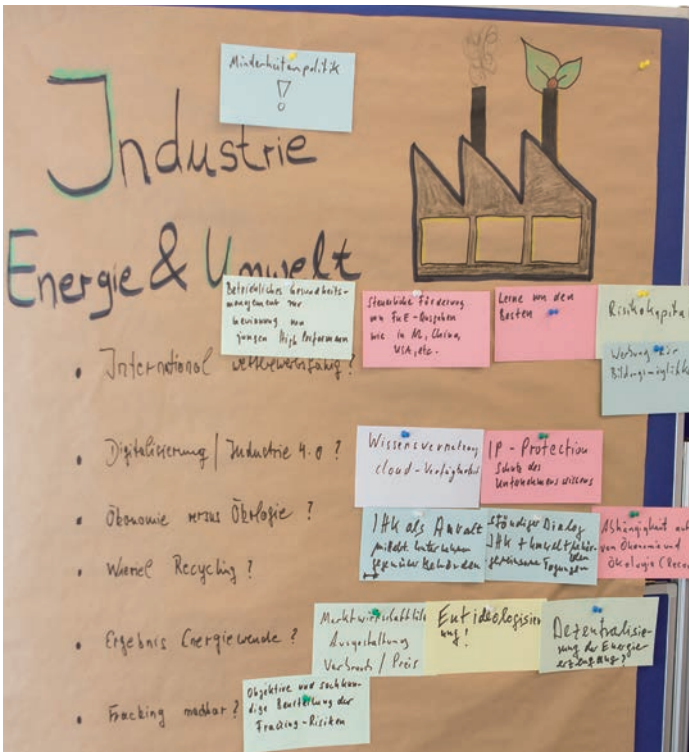 Minderheitenpolitik
!
Industrie
Energie & Umwelt
Betriebliches Gesundheits-
management zur
Gewinnung von
jungen High Performern
Steuerliche Förderung
von FuE-Ausgaben
wie in NL, China,
USA, etc.
Lerne von den
Besten
Risikokapita
Werbung für
Bildungsmöglichk
• International wettbewerbsfähig?
• Digitalisierung / Industrie 4.0?
Wissensvernetzung
cloud-Verfügbarkeit
IP-Protection
Schutz des
Unternehmenswissens
• Ökonomie versus Ökologie?
IHK als Anwalt
mittelst. Unternehmen
gegenüber Behörden
ständiger Dialog
IHK + Umweltbehör-
den
gemeinsame Tagungen
Abhängigkeit au
von Ökonomie und
Ökologie (Reco
• Wieviel Recycling?
• Ergebnis Energiewende?
Ausgestaltung
Verbrauch / Preis
Entideologisier
ung!
Dezentralisie-
rung der Energie-
erzeugung?
• Fracking machbar?
Objektive und sachkun-
dige Beurteilung der
Fracking-Risiken